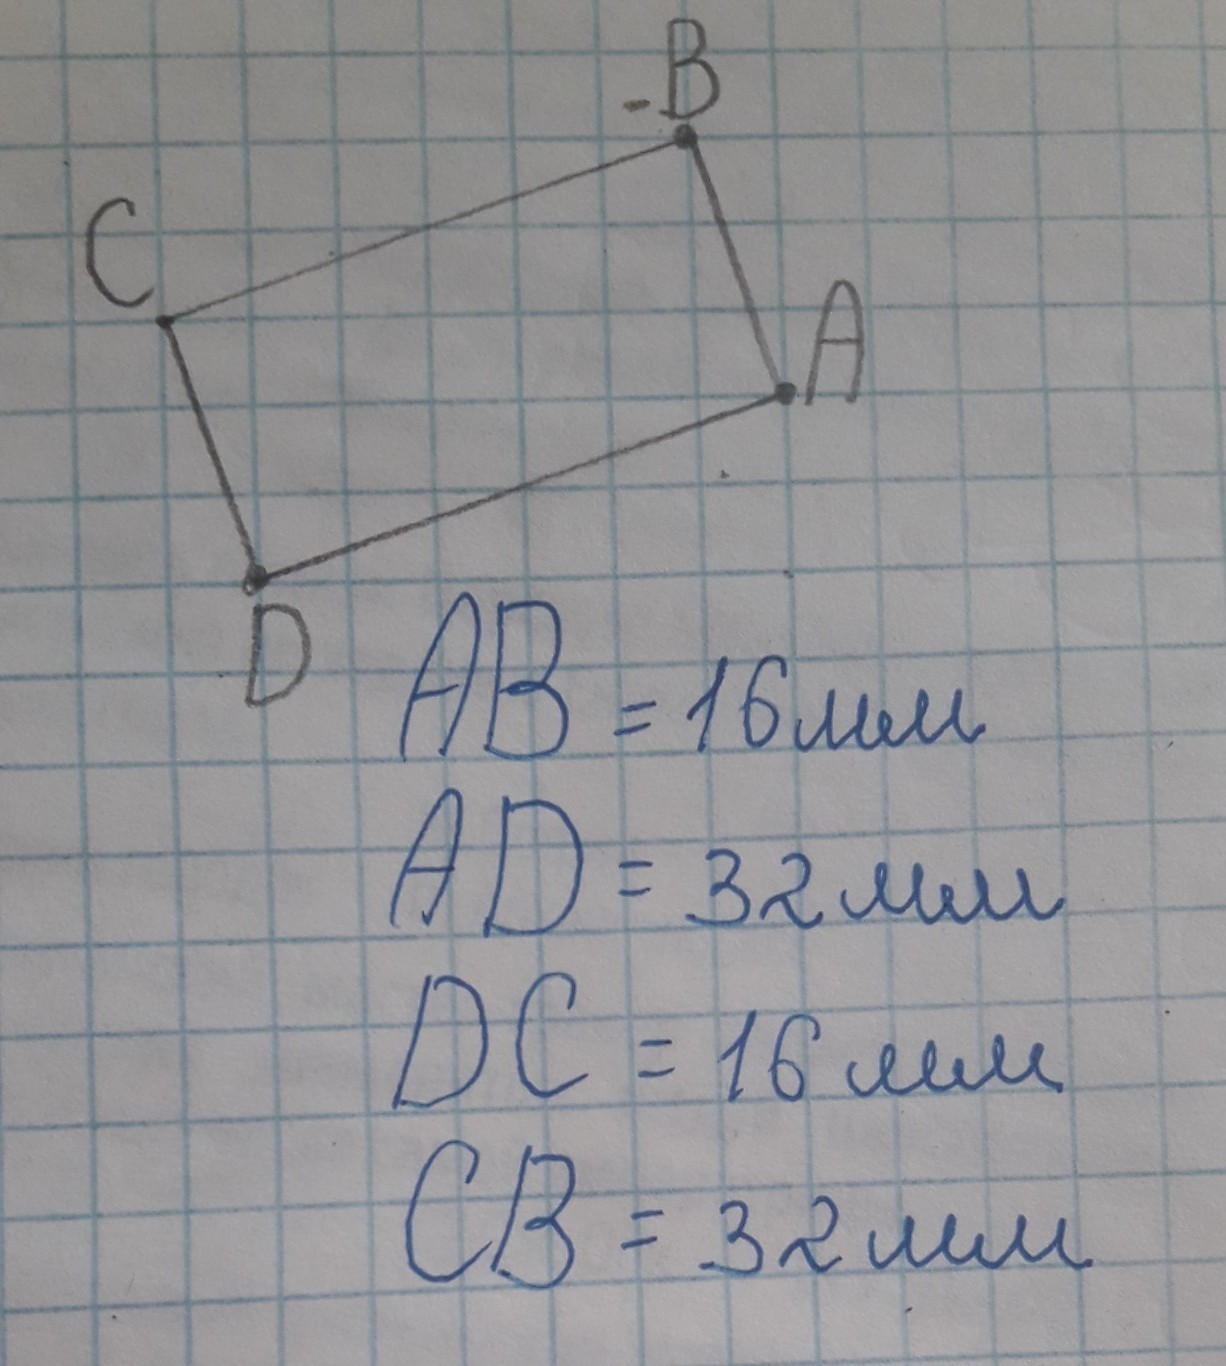 B
C
A
D
AB = 16мм
AD = 32мм
DC = 16мм
CB = 32мм